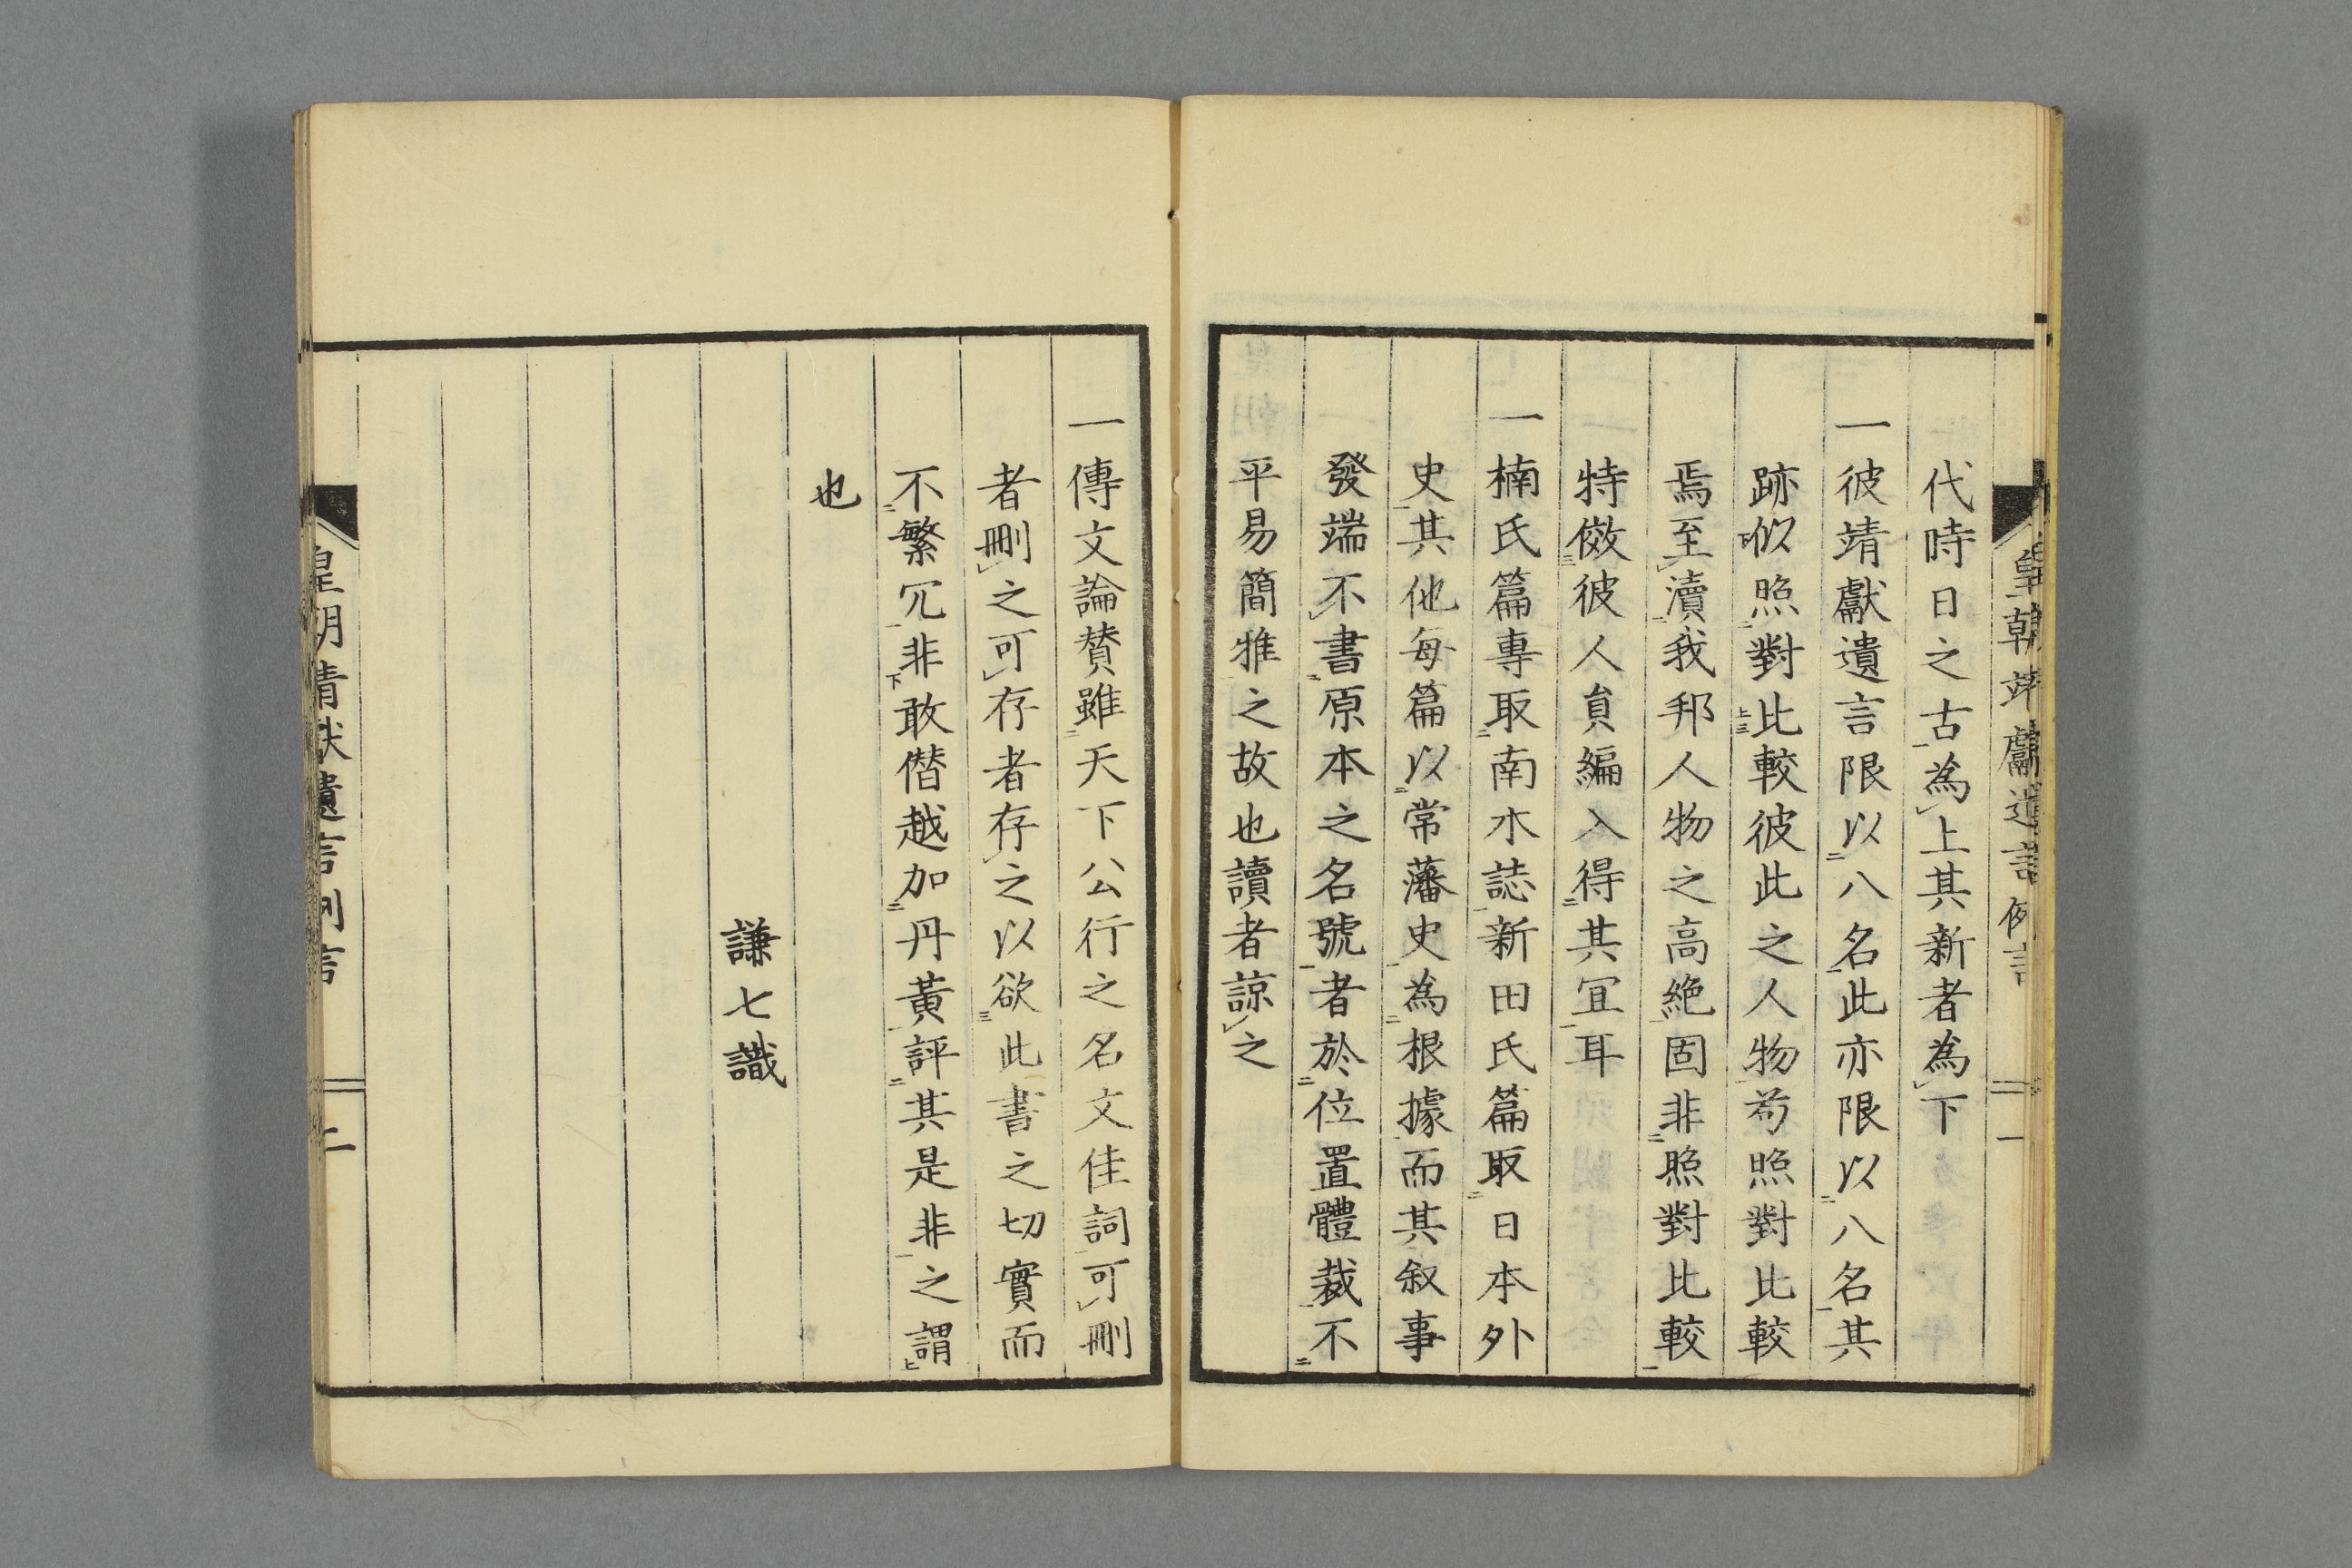 皇朝靖獻遺言例言 一
代時日之古為上其新者為下
一彼靖獻遺言限以八名此亦限以八名其
跡似照對比較彼此之人物苟照對比較
焉至瀆我邦人物之高絶固非照對比較
特傚彼人員編入得其冝耳
一楠氏篇專取南木誌新田氏篇取日本外
史其他每篇以常藩史為根據而其叙事
發端不書原本之名號者於位置體裁不
平易簡雅之故也讀者諒之
一傳文論賛雖天下公行之名文佳詞可刪
者刪之可存者存之以欲此書之切實而
不繁冗非敢僭越加丹黃評其是非之謂
也
謙七識
皇朝靖獻遺言例言 二